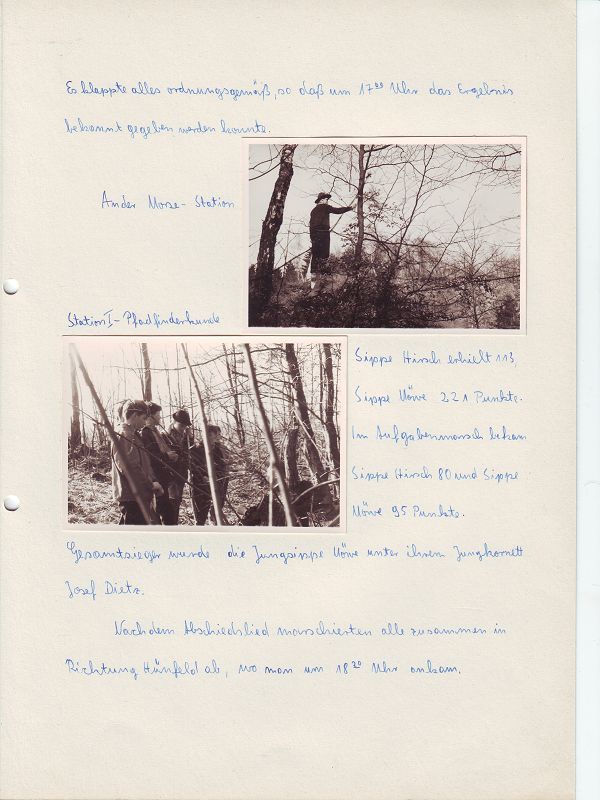 Es klappte alles ordnungsgemäß, so daß um 17⁰⁰ Uhr das Ergebnis
bekannt gegeben werden konnte.
An der Morse-Station
Station I - Pfadfinderkunde
Sippe Hirsch erhielt 113
Sippe Möwe 221 Punkte.
Im Aufgabenmarsch bekam
Sippe Hirsch 80 und Sippe
Möwe 95 Punkte.
Gesamtsieger wurde die Jungsippe Möwe unter ihrem Jungkornett
Josef Dietz.
Nach dem Abschiedslied marschierten alle zusammen in
Richtung Hünfeld ab, wo man um 18²⁰ Uhr ankam.